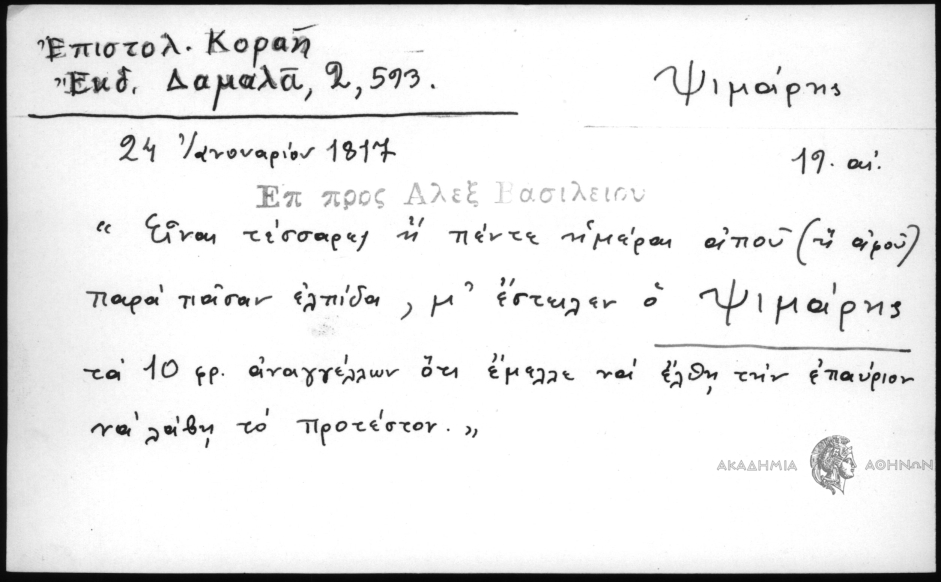 Ἐπιστολ. Κοραῆ
Ἔκδ. Δαμαλᾶ, 2, 593.
Ψιμάρης
24 Ἰανουαρίου 1817
19. αἰ.
Επ προς Αλεξ Βασιλειου
“ Εἶναι τέσσαρες ἢ πέντε ἡμέραι ἀποῦ (ἢ ἀφοῦ)
παρὰ πᾶσαν ἐλπίδα, μ' ἔστειλεν ὁ Ψιμάρης
τὰ 10 φρ. ἀναγγέλλων ὅτι ἔμελλε νὰ ἔλθῃ τὴν ἐπαύριον
νὰ λάβῃ τὸ προτέστον.„
ΑΚΑΔΗΜΙΑ ΑΘΗΝΩΝ